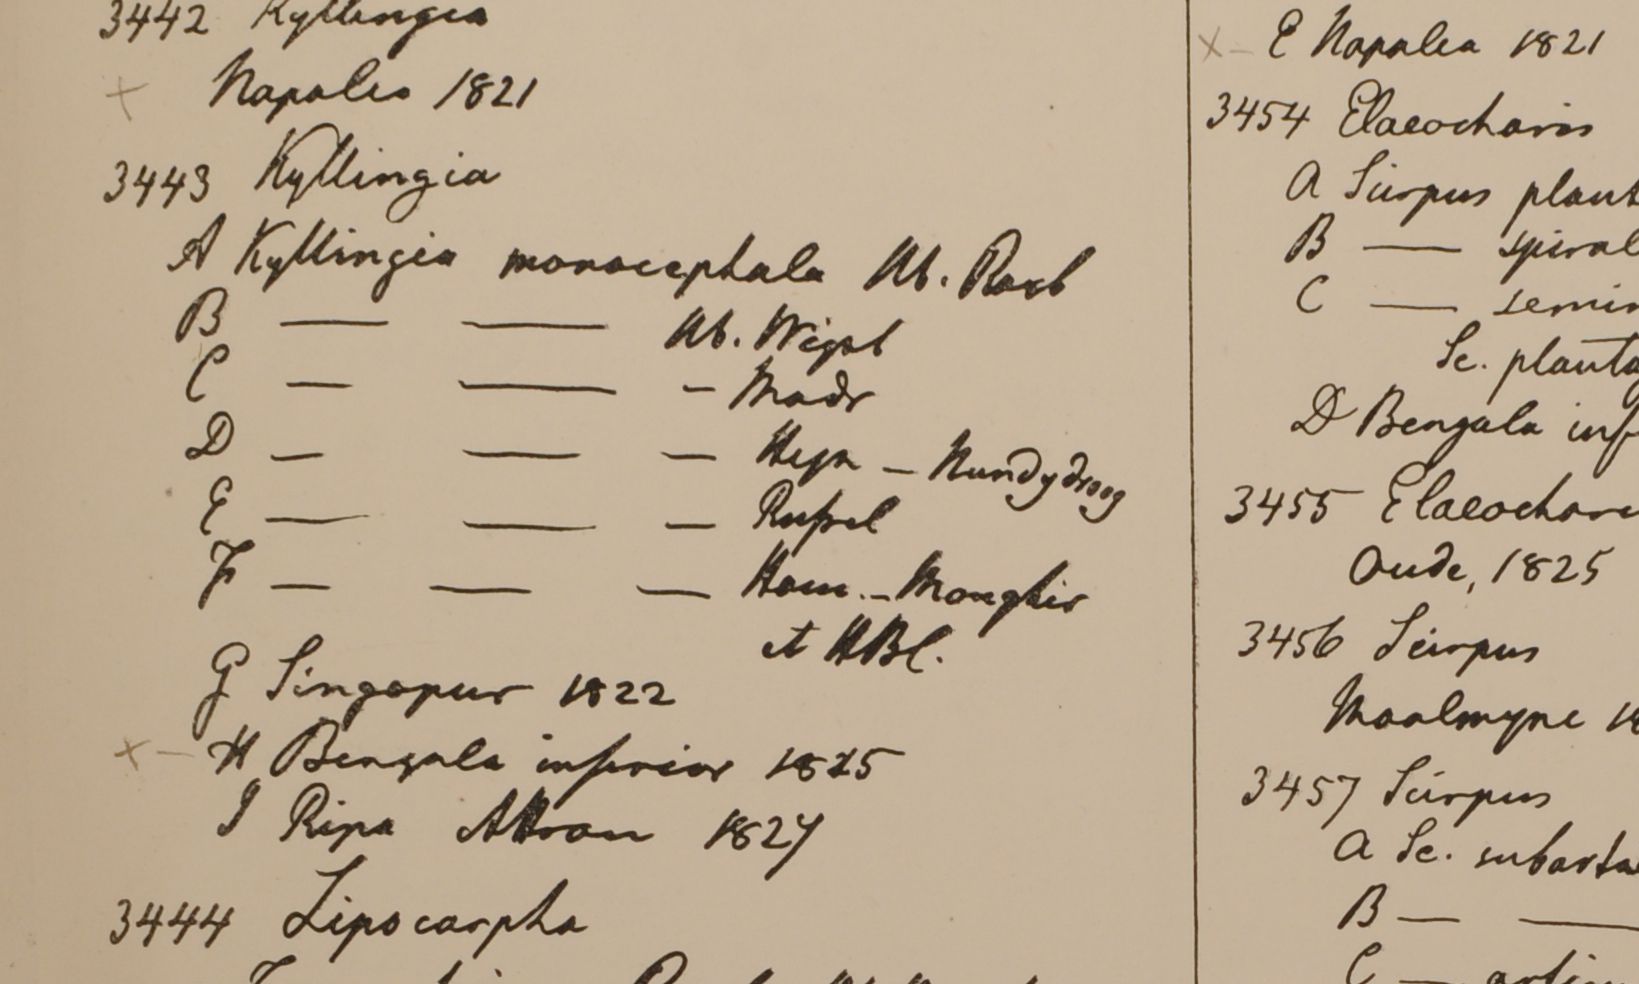 3442 Kyllingia
+ Napalia 1821
3443 Kyllingia
A Kyllingia monocephala Hb. Roxb
B — — Hb. Wight
C — — - Madr
D — — — Heyn - Nundydroog
E — — — Russel
F — — — Ham. - Monghir
et HBC.
G Singapur 1822
x - H Bengala inferior 1825
I Ripa Attran 1827
3444 Lipocarpha
x - E Napalia 1821
3454 Elaeocharis
A Scirpus plant
B — spiral
C — semin
Sc. planta
D Bengala inf
3455 Elaeochari
Oude, 1825
3456 Scirpus
Moalmyne 18
3457 Scirpus
A Sc. subarta
B — —
C —